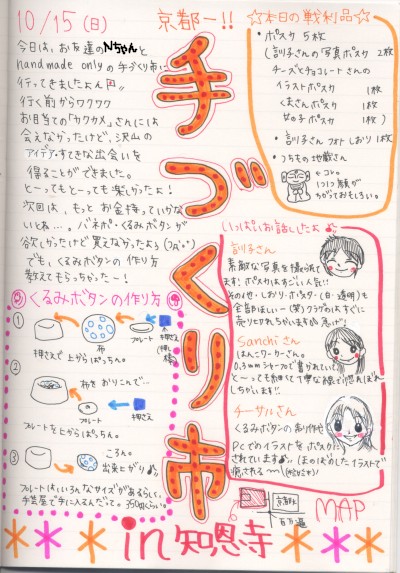 10/15(日)
京都ー!!
今日は、お友達のNちゃんと
handmade onlyの手づくり市に
行ってきましたよん
行く前からワクワク
お目当ての「カクカメ」さんには
会えなかったけど、沢山の
アイデア・すてきな出会いを
得ることができました。
と〜ってもとっても楽しかったよ!
次回は、もっとお金持っていかな
いとね…。バネポ・くるみボタンが
欲しかったけど買えなかたよぅ
でも、くるみボタンの作り方
教えてもらっちゃた〜!
手づくり市
in 知恩寺
☆本日の戦利品☆
・ポスカ 5枚
(訓子さんの写真ポスカ 2枚
チーズとチョコレートさんの
イラストポスカ 1枚
くまさんポスカ 1枚
女の子ポスカ 1枚)
・訓子さんフォトしおり 1枚
・つちもの地蔵さん
1コ。
1つ1つ顔が
ちがっておもしろい。
いっぱいお話したよ
訓子さん
素敵な写真を撮られて
ます!ポスカはすごい人気!!
その他・しおり・ポスター(白・透明)も
全部ほしい〜(笑)
売り切れちゃいますよ
Sanchiさん
はんこワーカーさん。
0.3mmシャープで書かれていて
と〜ってもお細くて丁寧な線
しちゃいます!!
チーサルさん
くるみボタンの制作や
PCでのイラストをポスカに
されています。(まのぼのしたイラストで
癒される〜
くるみボタンの作り方
①
布
プレート
押さえ
(押し棒)
押さえて上からぱっちん。
②
布をおりこんで…
プレート
押さえ
プレートを上からぱっちん。
③
ころん。
出来上がり
プレートはいろんなサイズがあるらしく、
手芸屋で手に入るんだって。350円くらい。
京都大
百万遍
MAP